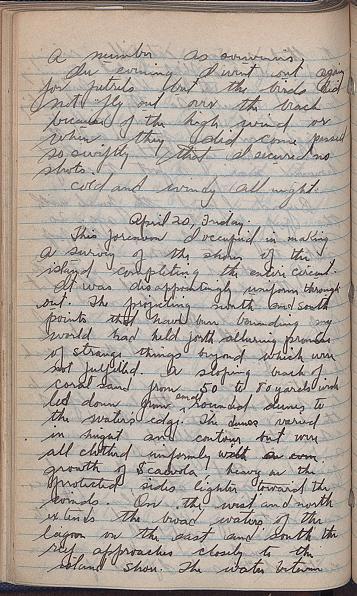 a number as souvenirs.
In evening I went out again
for petrels but the birds did
not fly out over the beach
because of the high wind or
when they did come passed
so swiftly that I secured no
shots.
Cold and windy all night.
April 20, Friday.
This forenoon I occupied in making
a survey of the shore of the
island completing the entire circuit.
It was disappointingly uniform through
out. The projecting north and south
points that have been bounding my
world had held forth alluring promise
of strange things beyond which were
not fulfilled. A sloping beach of
coral sand from 50 to 80 yards wide
led down from small rounded dunes to
the waters edge. The dunes varied
in height and contour but were
all clothed uniformly with an even
growth of Scaevola heavy on the
protected sides lighter toward the
winds. On the west and north
extends the broad waters of the
lagoon on the east and south the
reef approaches closely to the
island shore. The water between